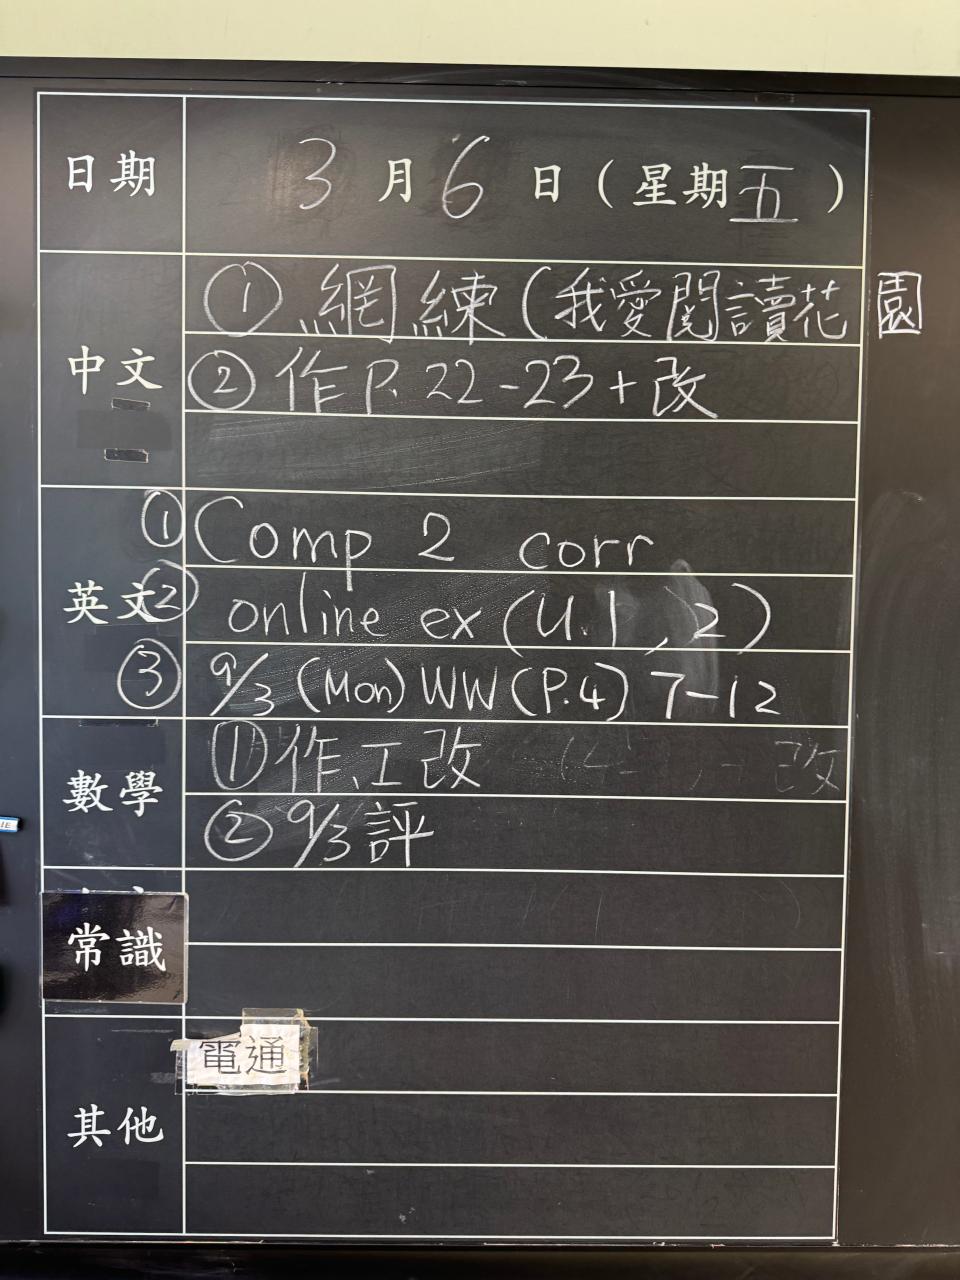 日期 3月6日(星期五)
中文
①網練(我愛閱讀花園
②作P.22-23+改
英文
①Comp 2 corr
②online ex(U.1,2)
③9/3(Mon)WW(P.4)7-12
數學
①作、工改
改
②9/3評
常識
其他
電通